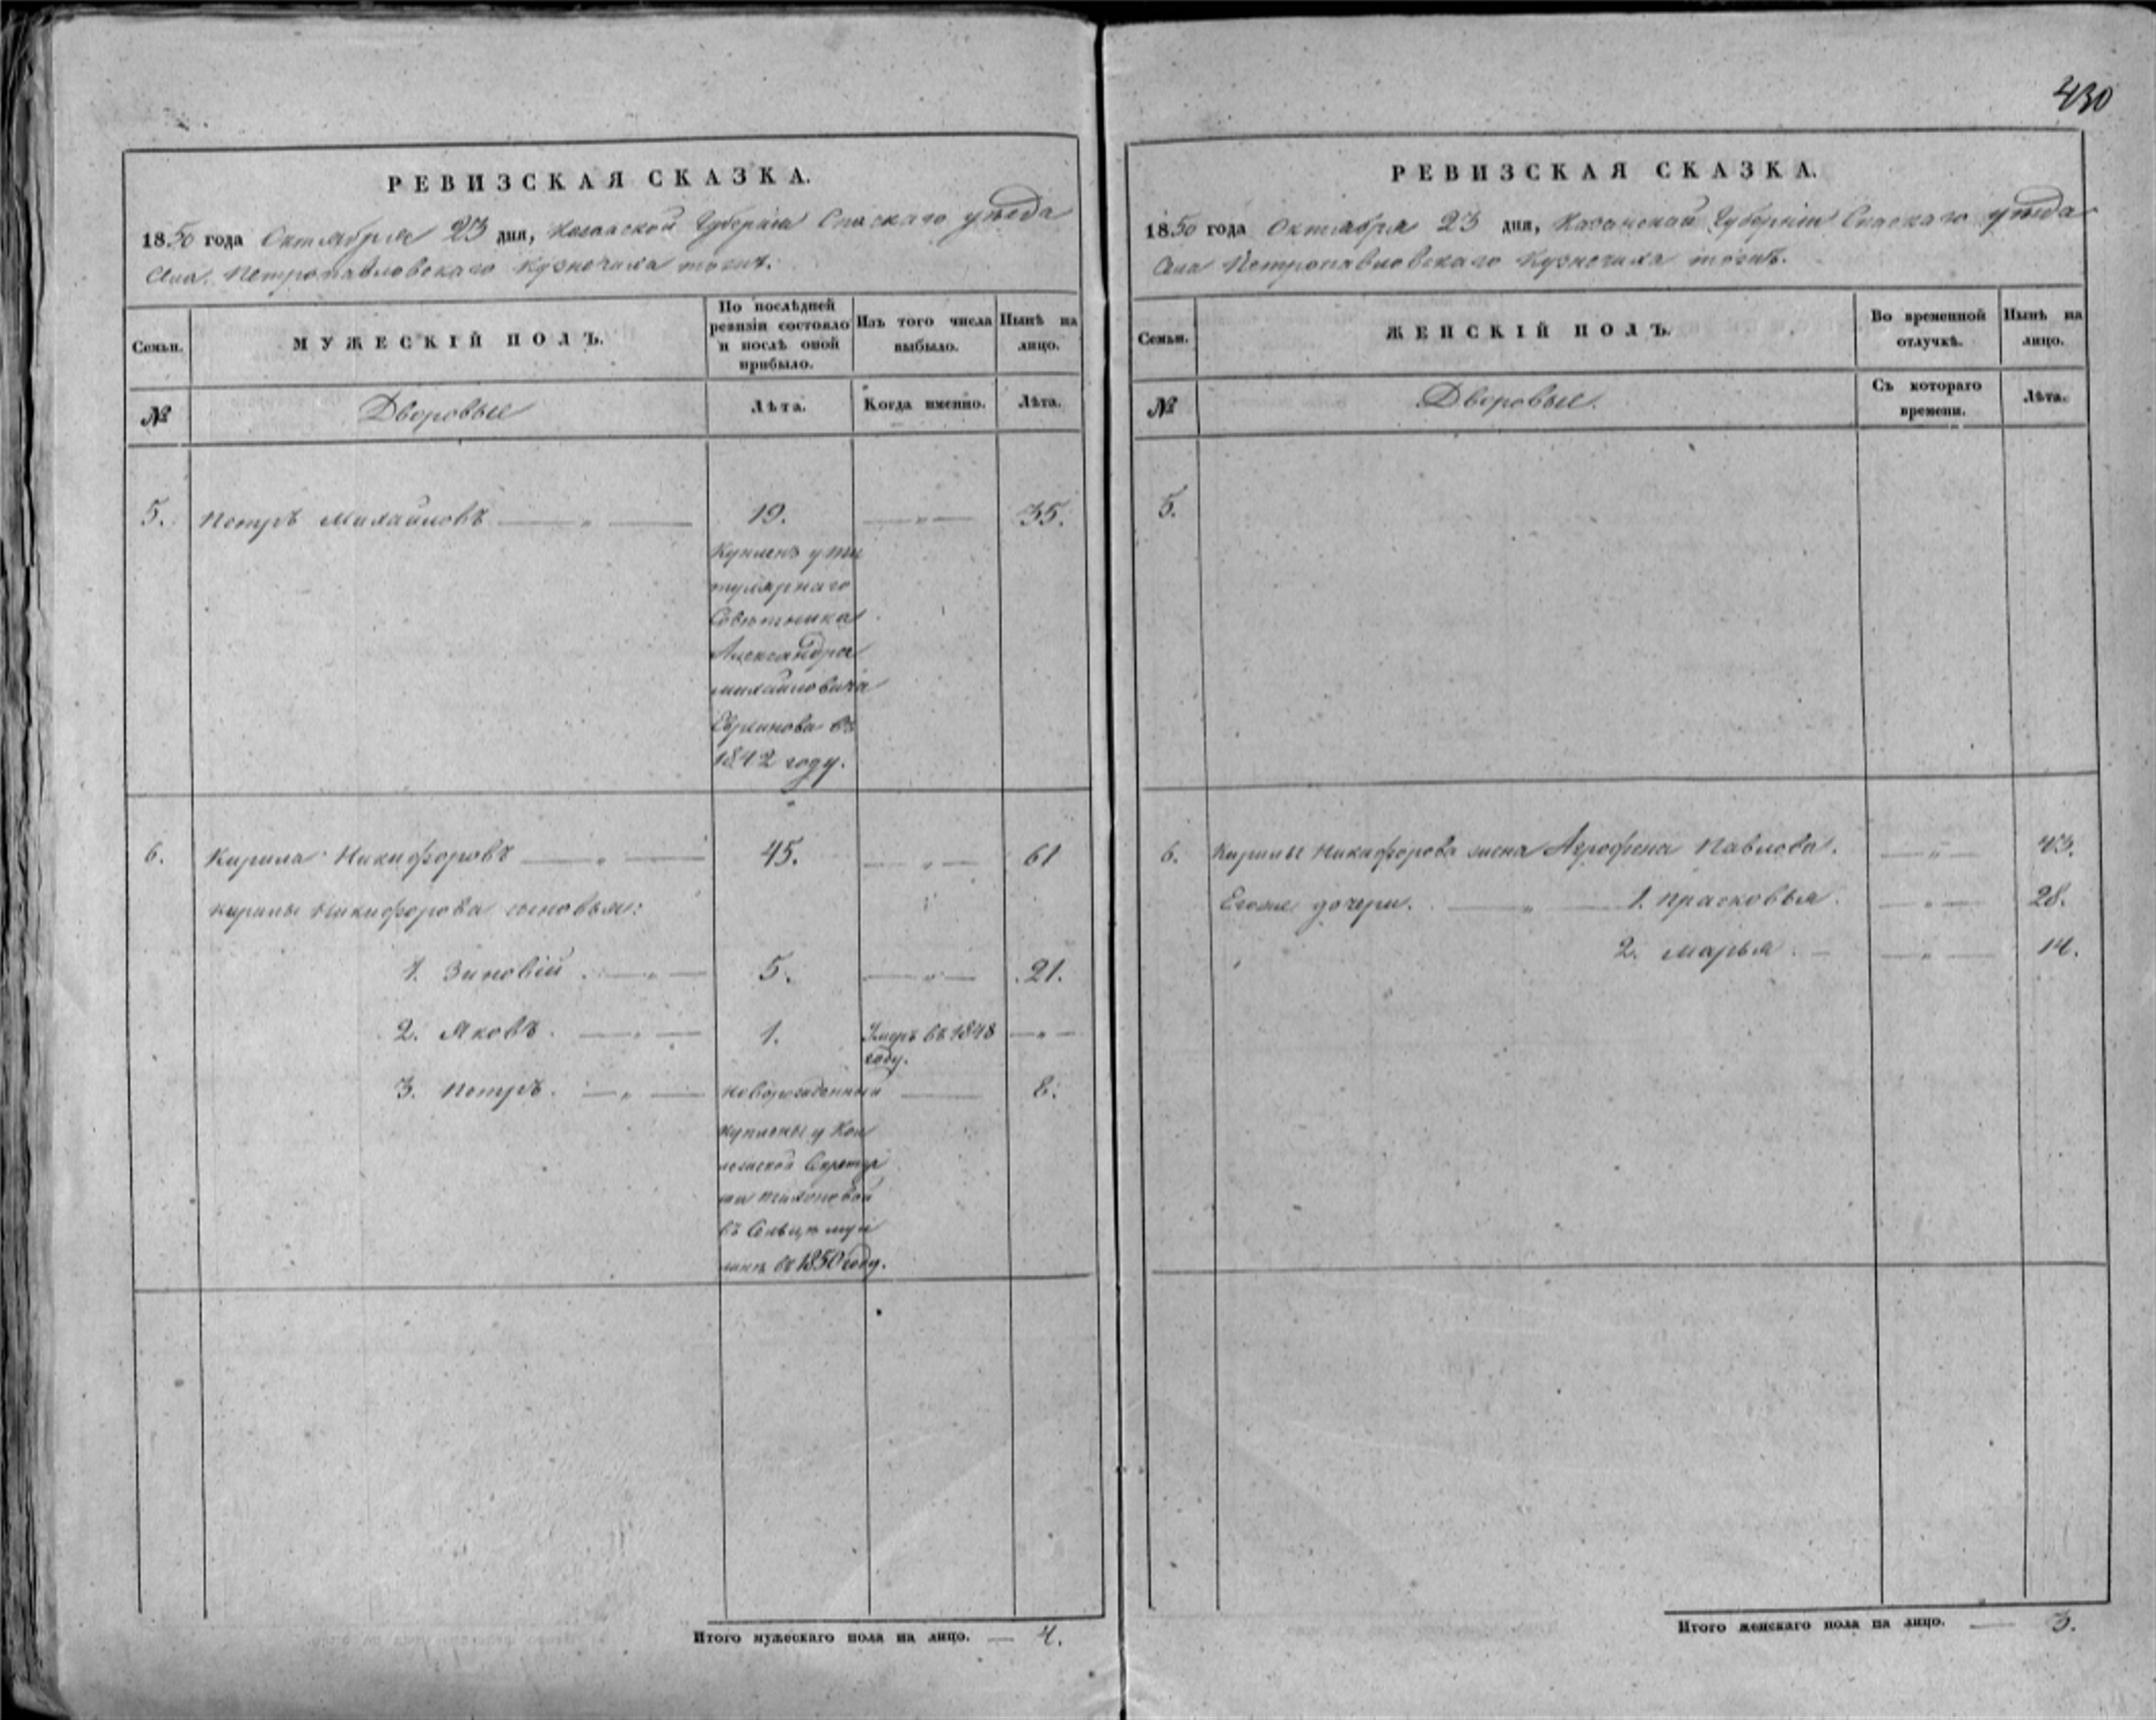 430
РЕВИЗСКАЯ СКАЗКА.
1850 года Октября 23 дня, Казанской Губернiи Спаскаго уѣзда
Села Петропавловскаго Кузнечиха тогожъ.
Семьи. МУЖЕСКІЙ ПОЛЪ. По послѣдней ревизіи состояло и послѣ оной прибыло. Изъ того числа выбыло. Нынѣ на лицо.
№ Дворовые Лѣта. Когда именно. Лѣта.
5. Петръ Михайловъ — " — 19. — " — 35.
Купленъ у ти
тулярнаго
Совѣтника
Александра
Михайловича
въ
1842 году.
6. Кирила Никифоровъ — " — 45. — " — 61
Кирилы Никифорова сыновья:
1. Зиновій — " — 5. — " — 21.
2. Яковъ. — " — 1. Умеръ въ 1848 году. — " —
3. Петръ. — " — новорожденный — 8.
Куплены у Кол
лежской Секретар
ши Тихоновой
въ
въ 1850 году.
Итого мужескаго пола на лицо. — 4.
РЕВИЗСКАЯ СКАЗКА.
1850 года Октября 23 дня, Казанской Губерніи Спаскаго уѣзда
Села Петропавловскаго Кузнечиха тогожъ.
Семьи. ЖЕНСКІЙ ПОЛЪ. Во временной отлучкѣ. Нынѣ на лицо.
№ Дворовые. Съ котораго времени. Лѣта.
5.
6. Кирилы Никифорова жена Агрофена Павлова. — " — 43.
Егоже дочери. — " — 1. Прасковья. — " — 28.
2. Марья. — — " — 14.
Итого женскаго пола на лицо. — 3.